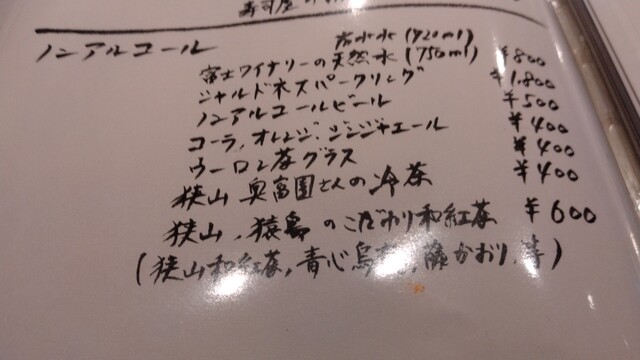 寿司屋の
ノンアルコール
水 (720ml) ¥800
富士ワイナリーの天然水 (750ml)
シャルドネスパークリング ¥1,800
ノンアルコールビール ¥500
コーラ, オレンジ, ジンジャエール ¥400
ウーロン茶グラス ¥400
狭山 奥富園さんの冷茶 ¥400
狭山, 猿島のこだわり和紅茶 ¥600
(狭山和紅茶, 青心烏, かおり, 等)